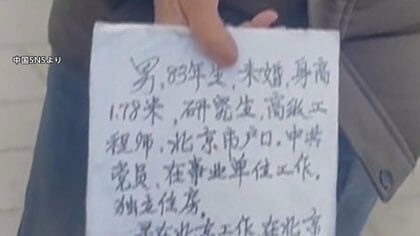 中国SNSより
男，83年生，未婚，身高
1.78米，研究生，高级工
程师，北京市户口。中共
党员，在事业单位工作。
独立住房。
在北京工作，在北京